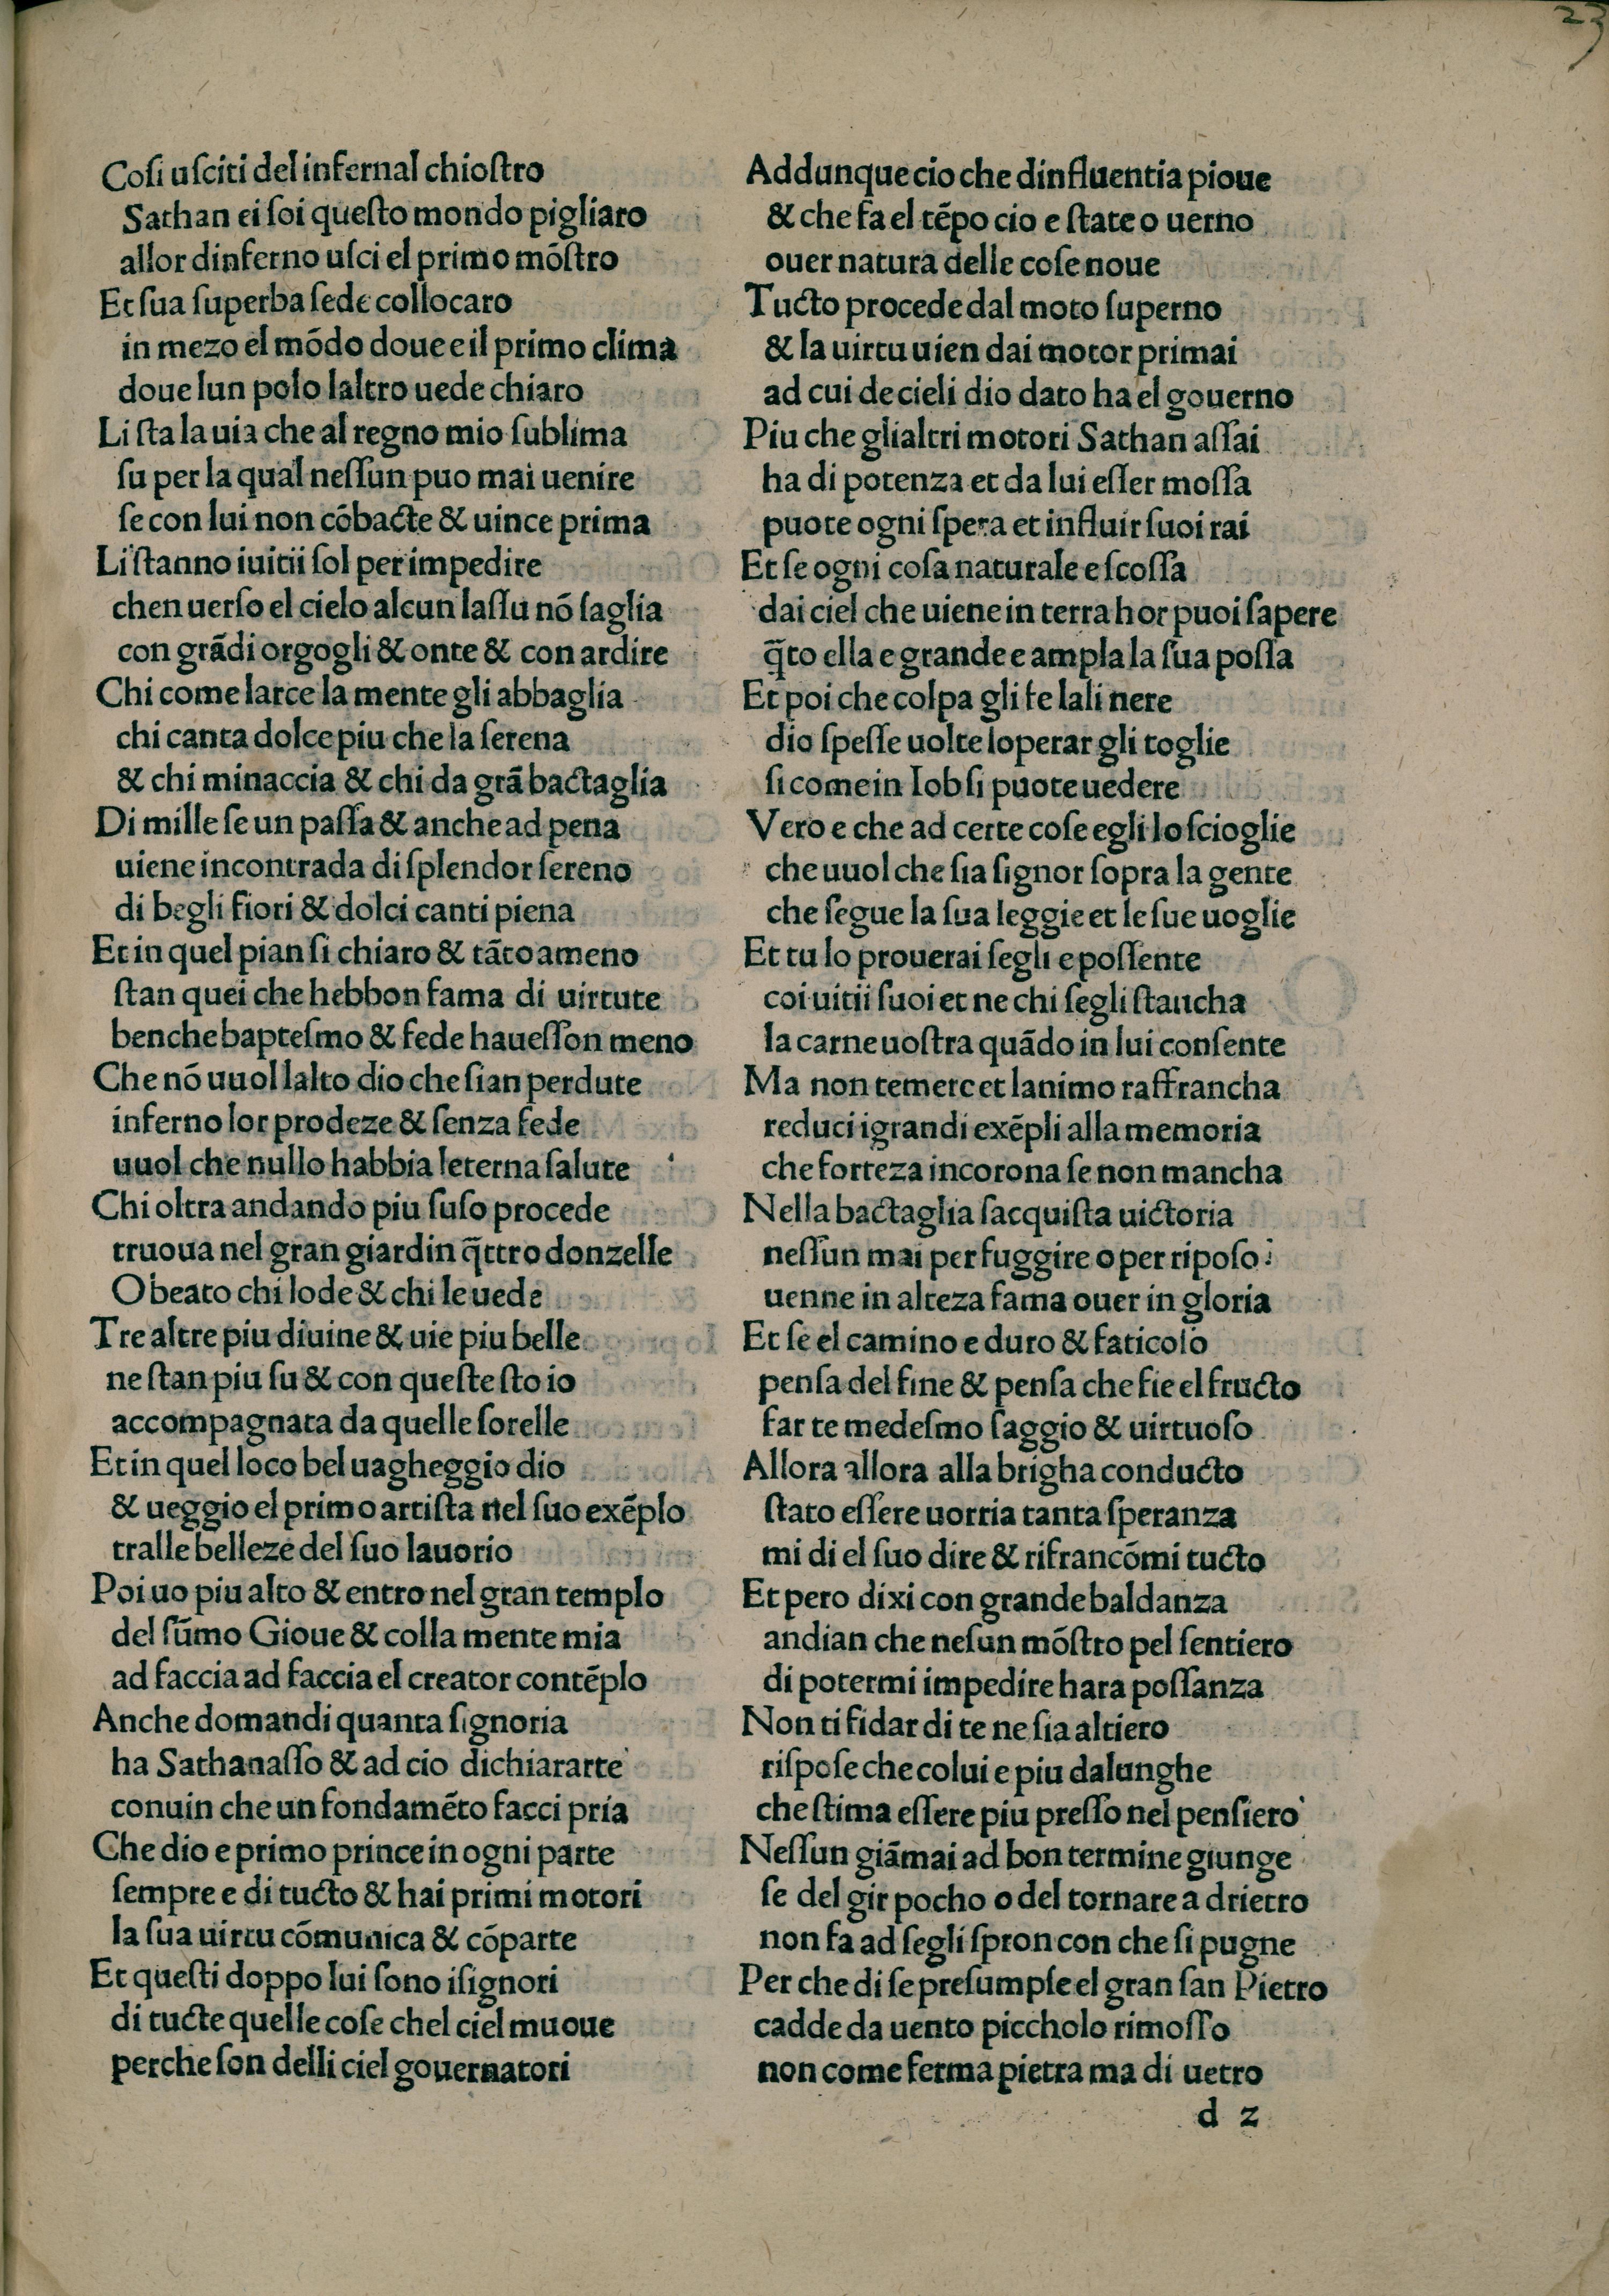 23
Coſi uſciti del infernal chioſtro
Sathan ei ſoi queſto mondo pigliaro
allor dinferno uſci el primo mōſtro
Et ſua ſuperba ſede collocaro
in mezo el mōdo doue e il primo clima
doue lun polo laltro uede chiaro
Li ſta la uia che al regno mio ſublima
ſu per la qual neſſun puo mai uenire
ſe con lui non cōbacte & uince prima
Li ſtanno iuitii ſol per impedire
chen uerſo el cielo alcun laſſu nō ſaglia
con grādi orgogli & onte & con ardire
Chi come larce la mente gli abbaglia
chi canta dolce piu che la ſerena
& chi minaccia & chi da grā bactaglia
Di mille ſe un paſſa & anche ad pena
uiene incontrada di ſplendor ſereno
di begli fiori & dolci canti piena
Et in quel pian ſi chiaro & tāto ameno
ſtan quei che hebbon fama di uirtute
benche bapteſmo & fede haueſſon meno
Che nō uuol lalto dio che ſian perdute
inferno lor prodeze & ſenza fede
uuol che nullo habbia leterna ſalute
Chi oltra andando piu ſuſo procede
truoua nel gran giardin q̄ttro donzelle
O beato chi lode & chi le uede
Tre altre piu diuine & uie piu belle
ne ſtan piu ſu & con queſte ſto io
accompagnata da quelle ſorelle
Et in quel loco bel uagheggio dio
& ueggio el primo artiſta nel ſuo exēplo
tralle belleze del ſuo lauorio
Poi uo piu alto & entro nel gran templo
del ſūmo Gioue & colla mente mia
ad faccia ad faccia el creator contēplo
Anche domandi quanta ſignoria
ha Sathanaſſo & ad cio dichiararte
conuin che un fondamēto facci pria
Che dio e primo prince in ogni parte
ſempre e di tucto & hai primi motori
la ſua uirtu cōmunica & cōparte
Et queſti doppo lui ſono iſignori
di tucte quelle coſe chel ciel muoue
perche ſon delli ciel gouernatori
Addunque cio che dinfluentia pioue
& che fa el tēpo cio e ſtate o uerno
ouer natura delle coſe noue
Tucto procede dal moto ſuperno
& la uirtu uien dai motor primai
ad cui de cieli dio dato ha el gouerno
Piu che glialtri motori Sathan aſſai
ha di potenza et da lui eſſer moſſa
puote ogni ſpera et influir ſuoi rai
Et ſe ogni coſa naturale e ſcoſſa
dai ciel che uiene in terra hor puoi ſapere
q̄to ella e grande e ampla la ſua poſſa
Et poi che colpa gli fe lali nere
dio ſpeſſe uolte loperar gli toglie
ſi come in Iob ſi puote uedere
Vero e che ad certe coſe egli lo ſcioglie
che uuol che ſia ſignor ſopra la gente
che ſegue la ſua leggie et le ſue uoglie
Et tu lo prouerai ſegli e poſſente
coi uitii ſuoi et ne chi ſegli ſtancha
la carne uoſtra quādo in lui conſente
Ma non temere et lanimo raffrancha
reduci igrandi exēpli alla memoria
che forteza incorona ſe non mancha
Nella bactaglia ſacquiſta uictoria
neſſun mai per fuggire o per ripoſo
uenne in alteza fama ouer in gloria
Et ſe el camino e duro & faticoſo
penſa del fine & penſa che fie el fructo
far te medeſmo ſaggio & uirtuoſo
Allora allora alla brigha conducto
ſtato eſſere uorria tanta ſperanza
mi di el ſuo dire & rifrancōmi tucto
Et pero dixi con grande baldanza
andian che neſun mōſtro pel ſentiero
di potermi impedire hara poſſanza
Non ti fidar di te ne ſia altiero
riſpoſe che colui e piu dalunghe
che ſtima eſſere piu preſſo nel penſiero
Neſſun giāmai ad bon termine giunge
ſe del gir pocho o del tornare a drietro
non fa ad ſegli ſpron con che ſi pugne
Per che di ſe preſumpſe el gran ſan Pietro
cadde da uento piccholo rimoſſo
non come ferma pietra ma di uetro
d 2